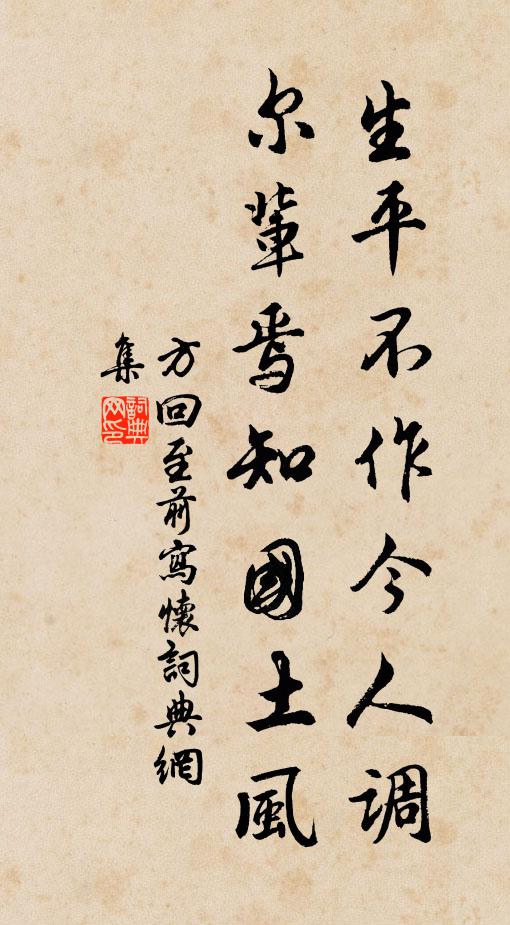 生平不作今人调
尔辈焉知國土風
方回至前寫懷詞典網
集
詞典网印